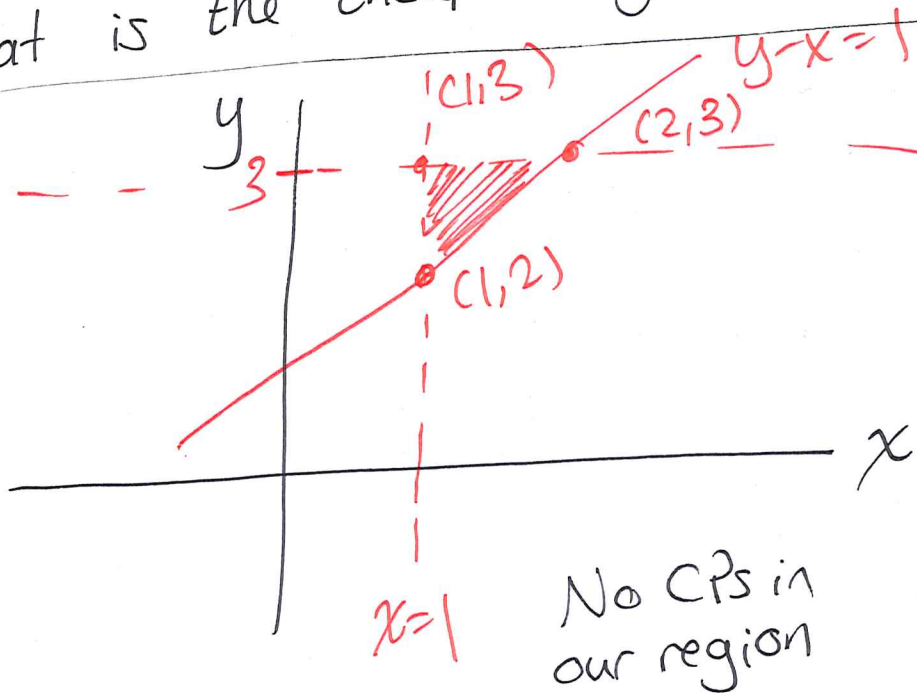 is the
y-x=1
(1,3)
y
(2,3)
3
(1,2)
x
x=1
No CPs in
our region